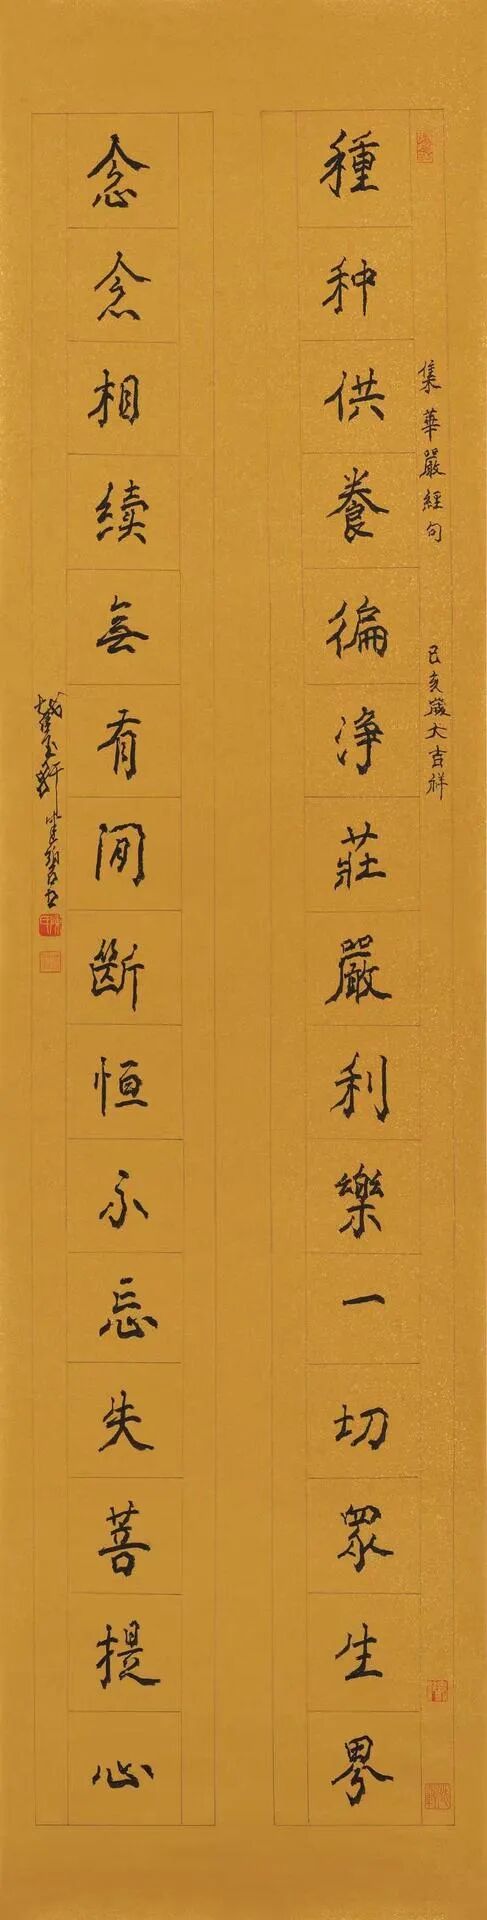 集華嚴經句 己亥歲大吉祥
種种供養徧淨莊嚴利樂一切眾生界
念念相續無有間斷恒不忘失菩提心